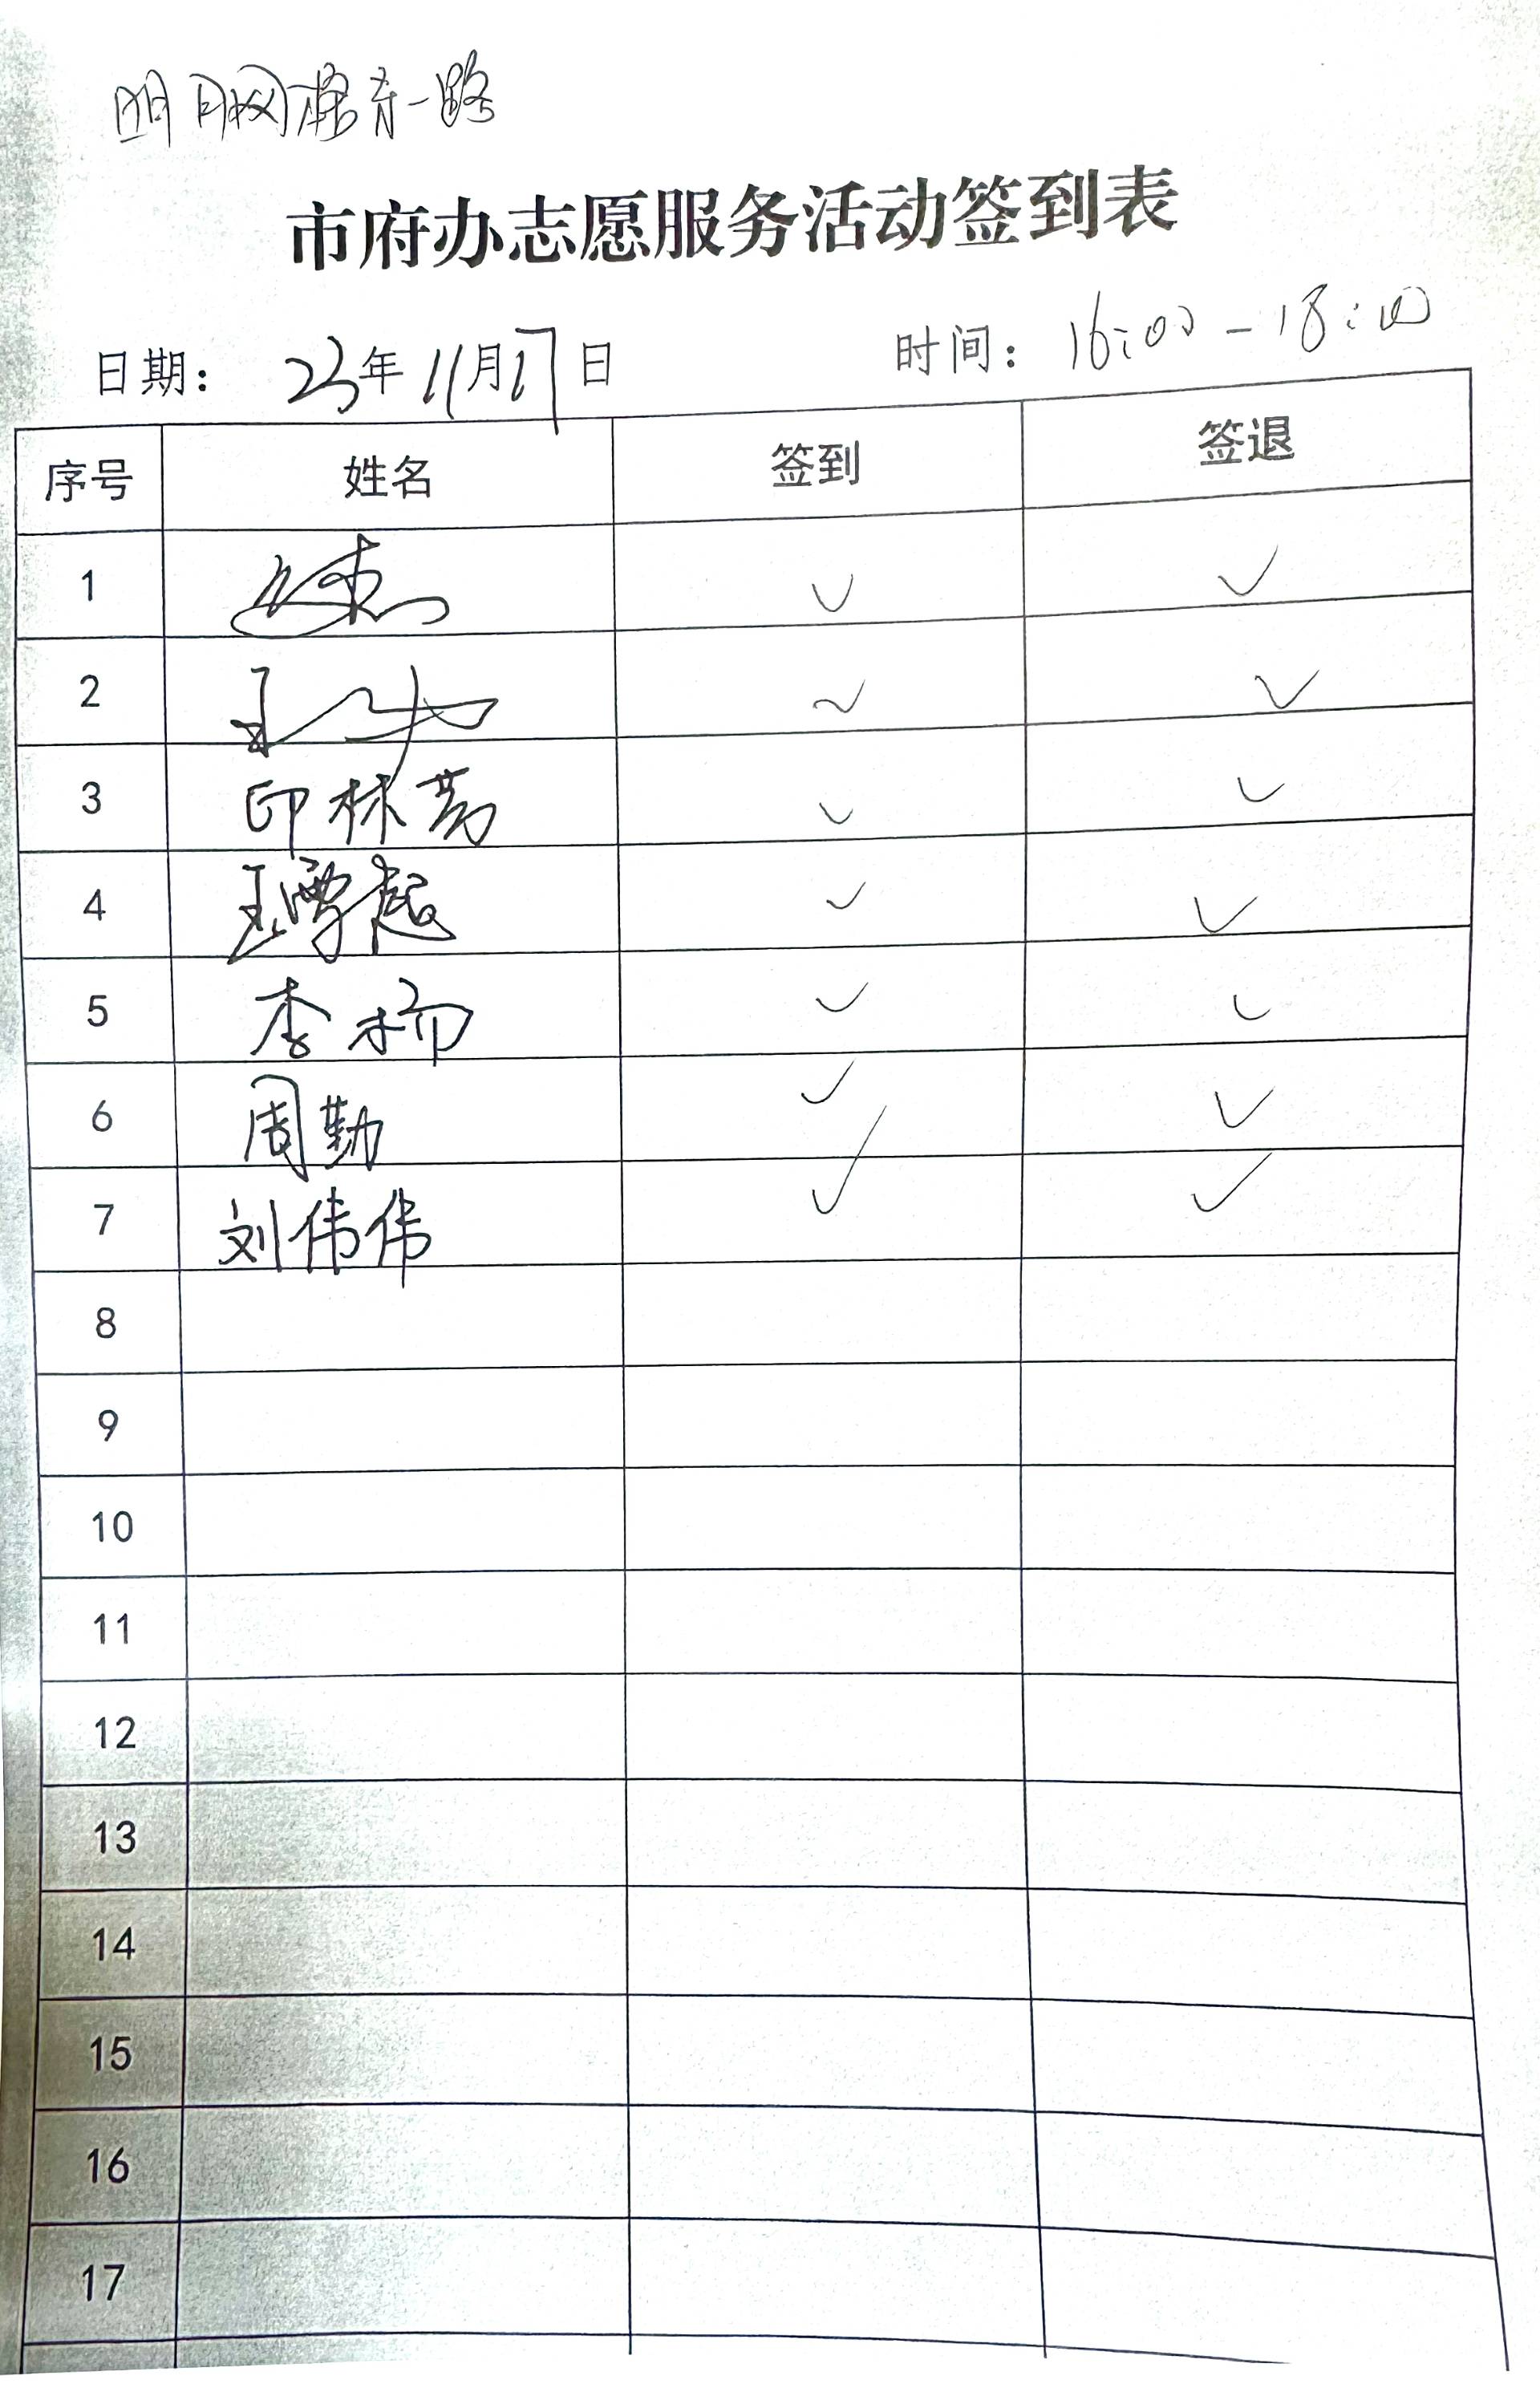 明月网格齐一路
市府办志愿服务活动签到表
日期： 23年11月17日 时间：16:00-18:00
序号 姓名 签到 签退
1 ✓ ✓
2 王 ✓ ✓
3 印林芳 ✓ ✓
4 王 ✓ ✓
5 李杨 ✓ ✓
6 周勤 ✓ ✓
7 刘伟伟 ✓ ✓
8
9
10
11
12
13
14
15
16
17